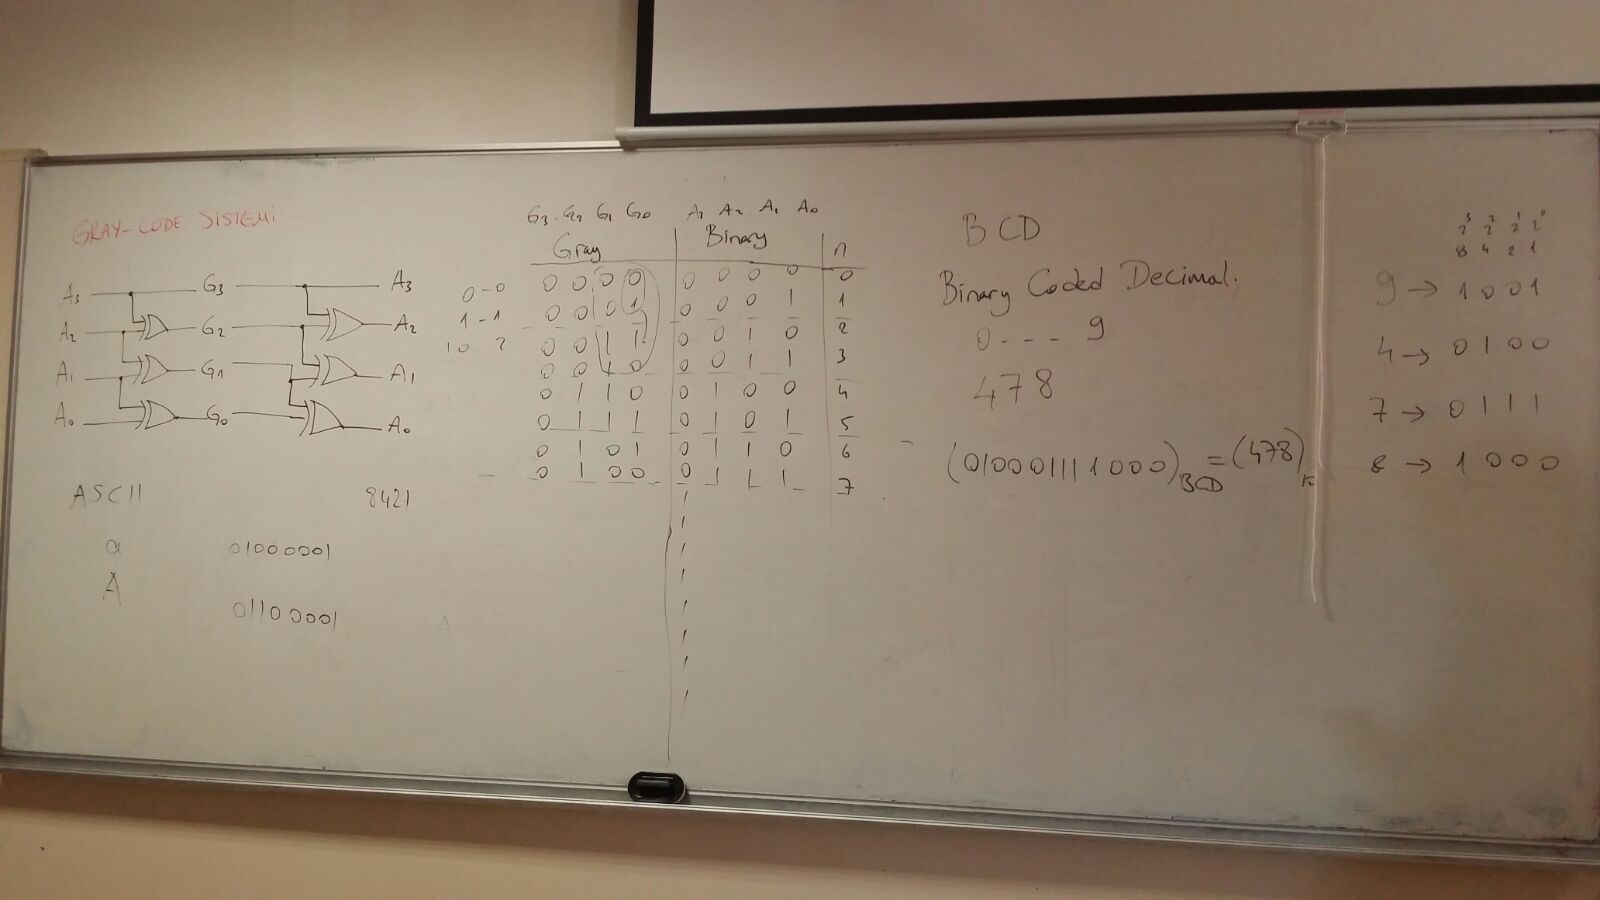 GRAY-CODE SİSTEMİ
A3 G3 A3
A2 G2 A2
A1 G1 A1
A0 G0 A0
ASCII 8421
a 01000001
A
01100001
0-0
1-1
10 ?
G3 G2 G1 G0 A3 A2 A1 A0
Gray Binary n
0 0 0 0 0 0 0 0 0
0 0 0 1 0 0 0 1 1
0 0 1 1 0 0 1 0 2
0 0 1 0 0 0 1 1 3
0 1 1 0 0 1 0 0 4
0 1 1 1 0 1 0 1 5
0 1 0 1 0 1 1 0 6
0 1 0 0 0 1 1 1 7
1
1
1
1
1
1
1
1
BCD
Binary Coded Decimal.
0 - - - 9
478
(010001111000)BCD = (478)10
2³ 2² 2¹ 2⁰
8 4 2 1
9 → 1001
4 → 0100
7 → 0111
8 → 1000